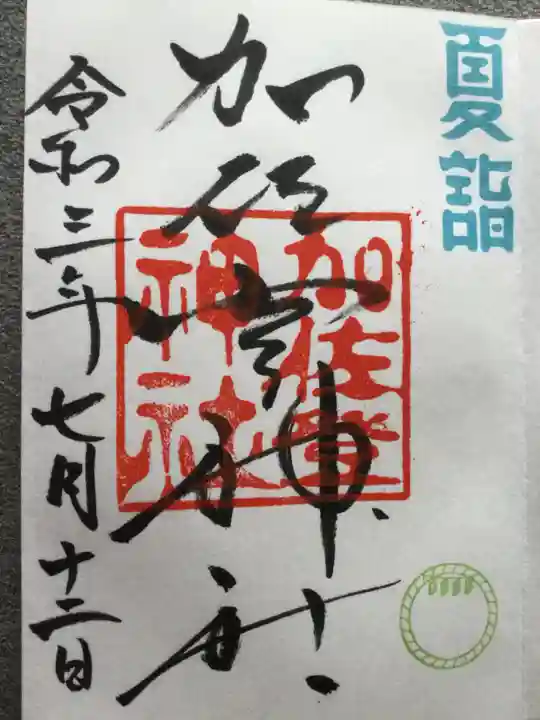 夏詣
加佐登神社
加佐登神社
令和三年七月十二日